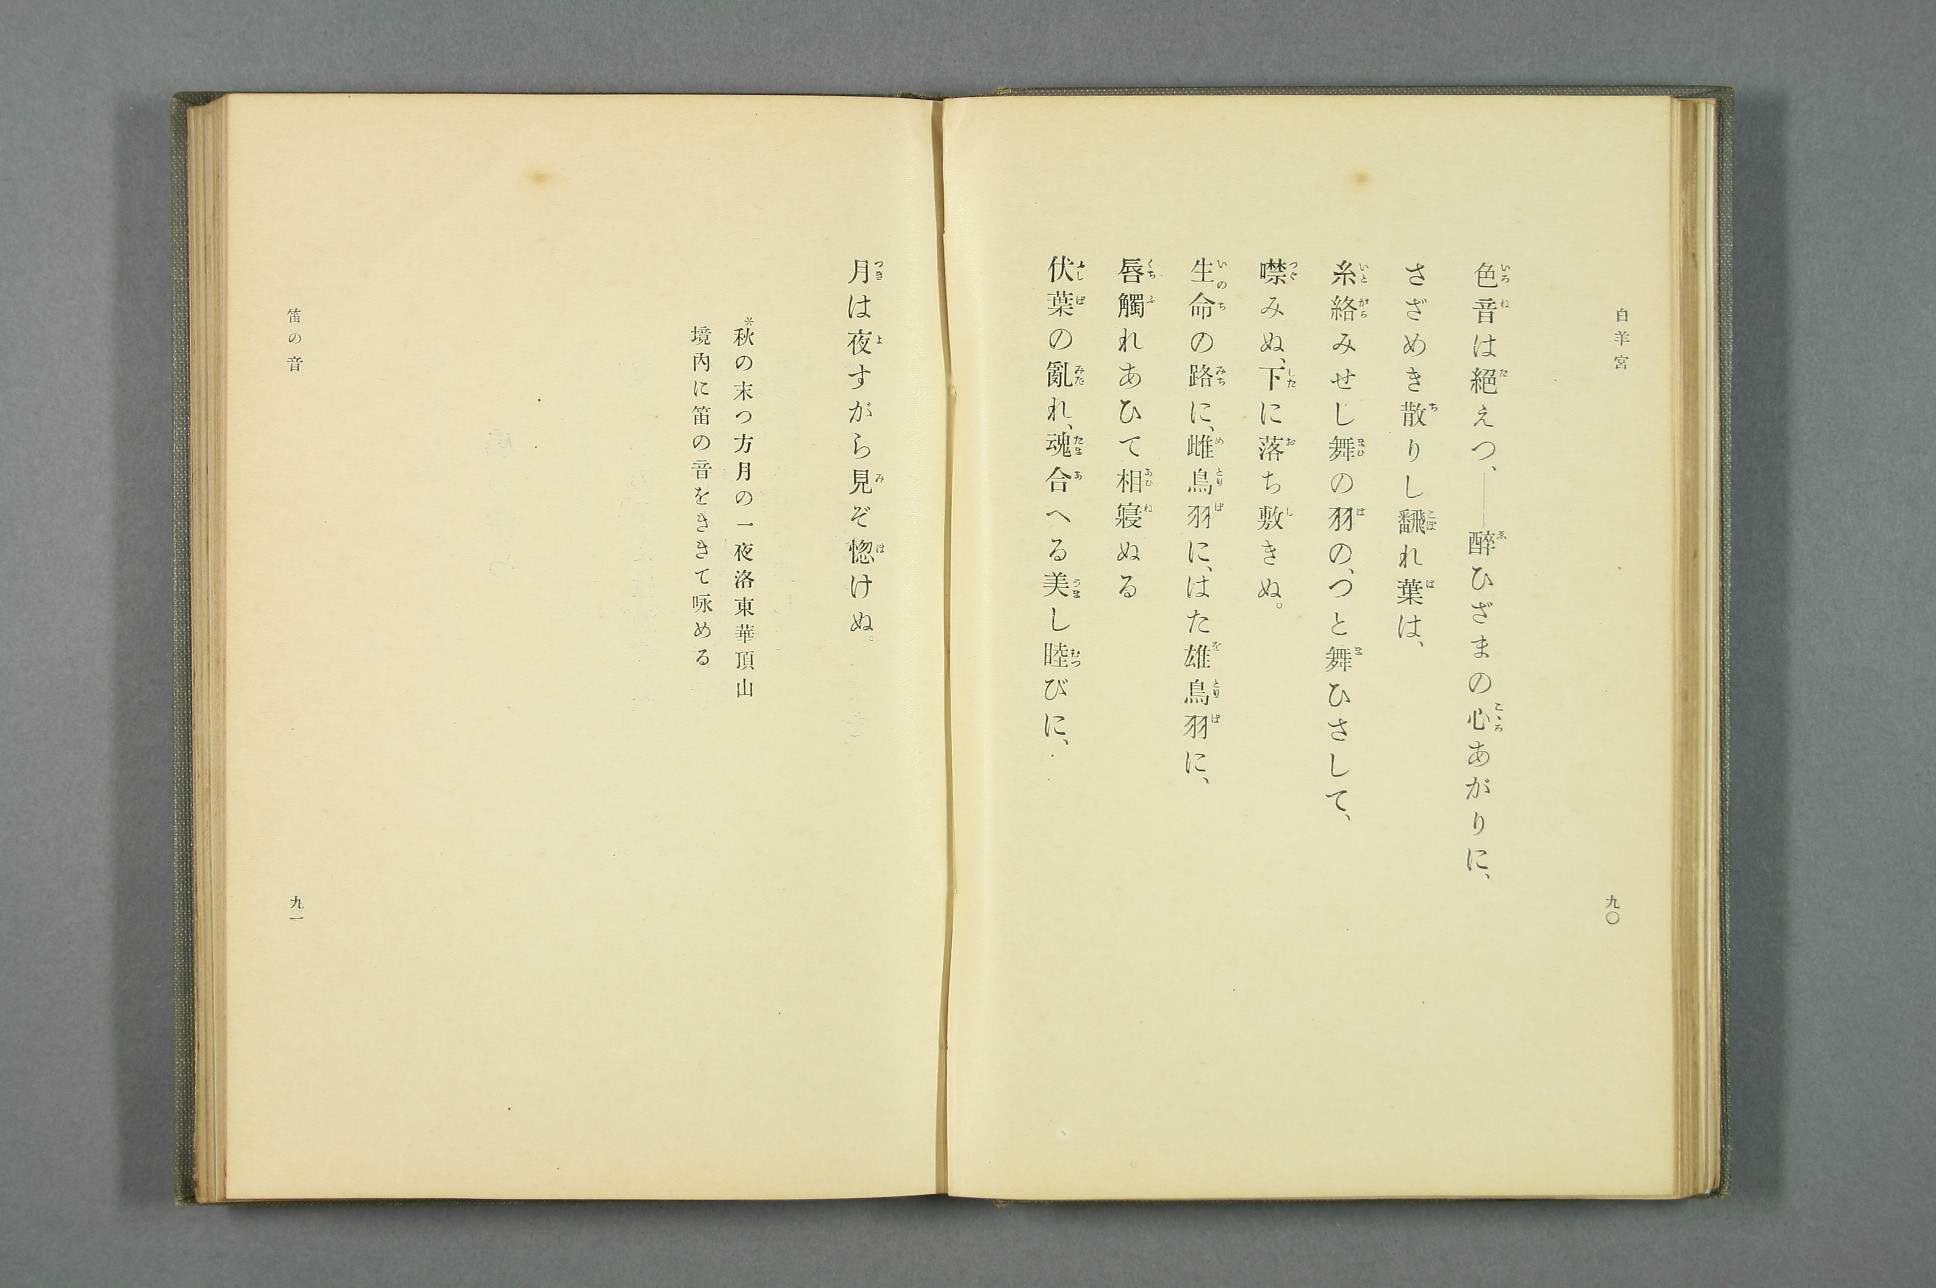 白羊宮
色音は絕えつ、――醉ひざまの心あがりに、
さざめき散りし飜れ葉は、
糸絡みせし舞の羽の、つと舞ひさして、
噤みぬ、下に落ち敷きぬ。
生命の路に、雌鳥羽に、はた雄鳥羽に、
唇觸れあひて相寢ぬる
伏葉の亂れ、魂合へる美し睦びに、
九〇
月は夜すがら見ぞ惚けぬ。
*秋の末つ方月の一夜洛東華頂山
境內に笛の音をききて咏める
笛の音
九一